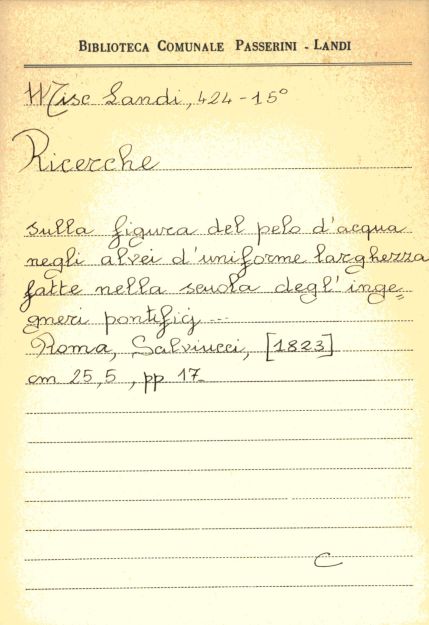 BIBLIOTECA COMUNALE PASSERINI - LANDI
Misc Landi, 424-15°
Ricerche
sulla figura del pelo d'acqua
negli alvei d'uniforme larghezza
fatte nella scuola degl'inge=
gneri pontificj ...
Roma, Salviucci, [1823]
cm 25,5, pp 17
C